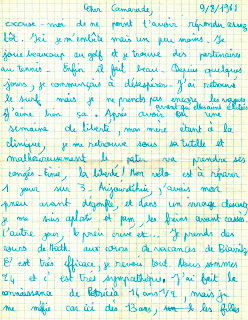 Cher Camarade, 9/8/1963
excuse-moi de ne point t'avoir répondu assez
tôt. Ici je m'embête mais un peu moins. Je
joue beaucoup au golf et je trouve des partenaires
au tennis. Enfin il fait beau. Depuis quelques
jours, je commençais à désespérer. J'ai retrouvé
le surf mais je ne prends pas encore les vagues
avant qu'elles soient éclatées
j'aime bien ça. Après avoir eu une
semaine de liberté, mon mère étant à la
clinique, je me retrouve sous sa tutelle et
malheureusement le pater va prendre ses
congés. Fini, la liberté! Mon vélo est à réparer
1 jour sur 3. Aujourd'hui, j'avais mon
pneu avant dégonflé, et dans un virage
je me suis aplati et pan, les freins avant cassés
l'autre jour, le pneu crevé etc... Je prends des
cours de Math. aux cours de vacances de Biarritz
C'est très efficace, je revois tout. Nous sommes
24 et c'est très sympathique. J'ai fait la
connaissance de Patricia 14 ans 1/2, mais je
me méfie car ici dès 13 ans, les filles